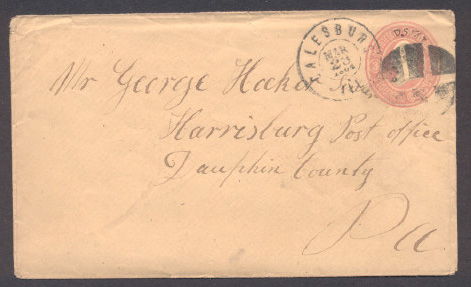 GALESBURG
MAR
Mr George Hocker
Harrisburg Post office
Dauphin County
Pa